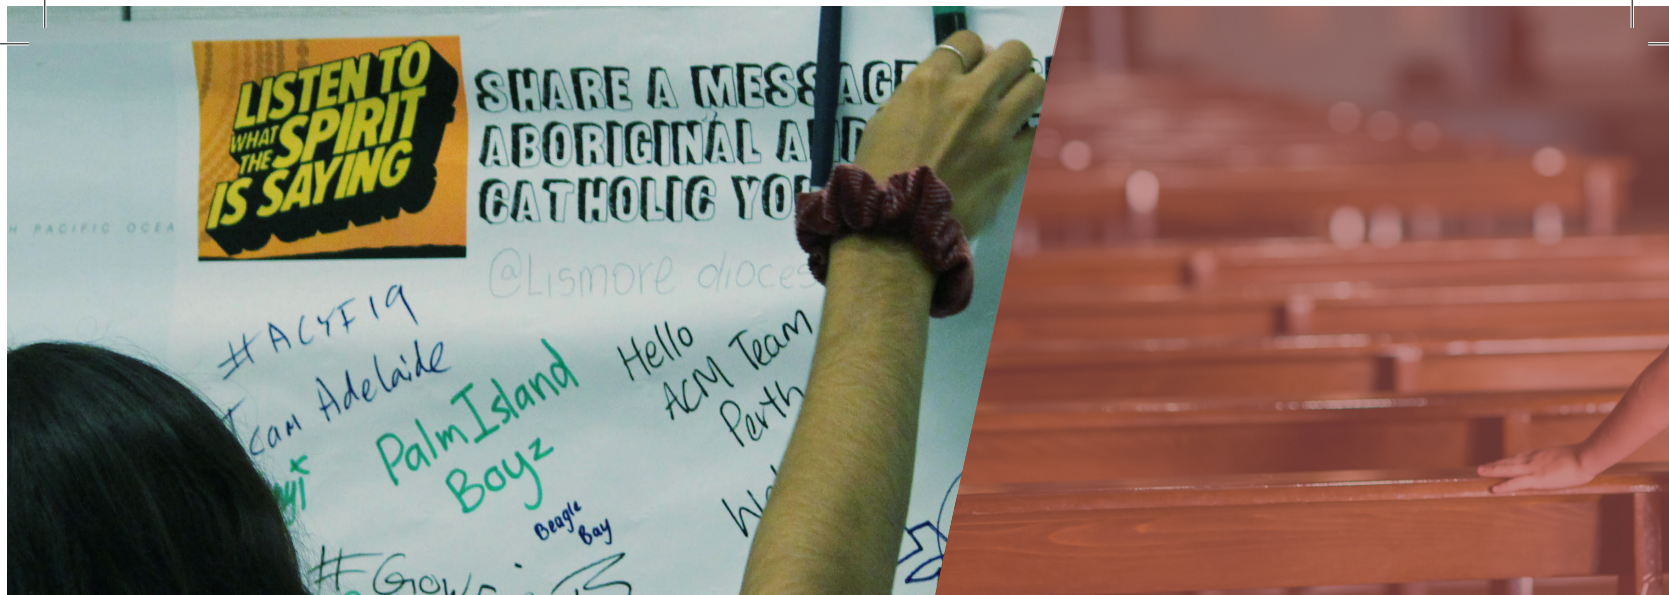 LISTEN TO
WHAT SPIRIT
THE
IS SAYING
SHARE A MESSAGE
ABORIGINAL AND
CATHOLIC YOU
H PACIFIC OCEA
@Lismore dioces
#ACYF19
Team Adelaide
Palm Island
Boyz
Hello
ACM Team
Perth
Beagle
Bay